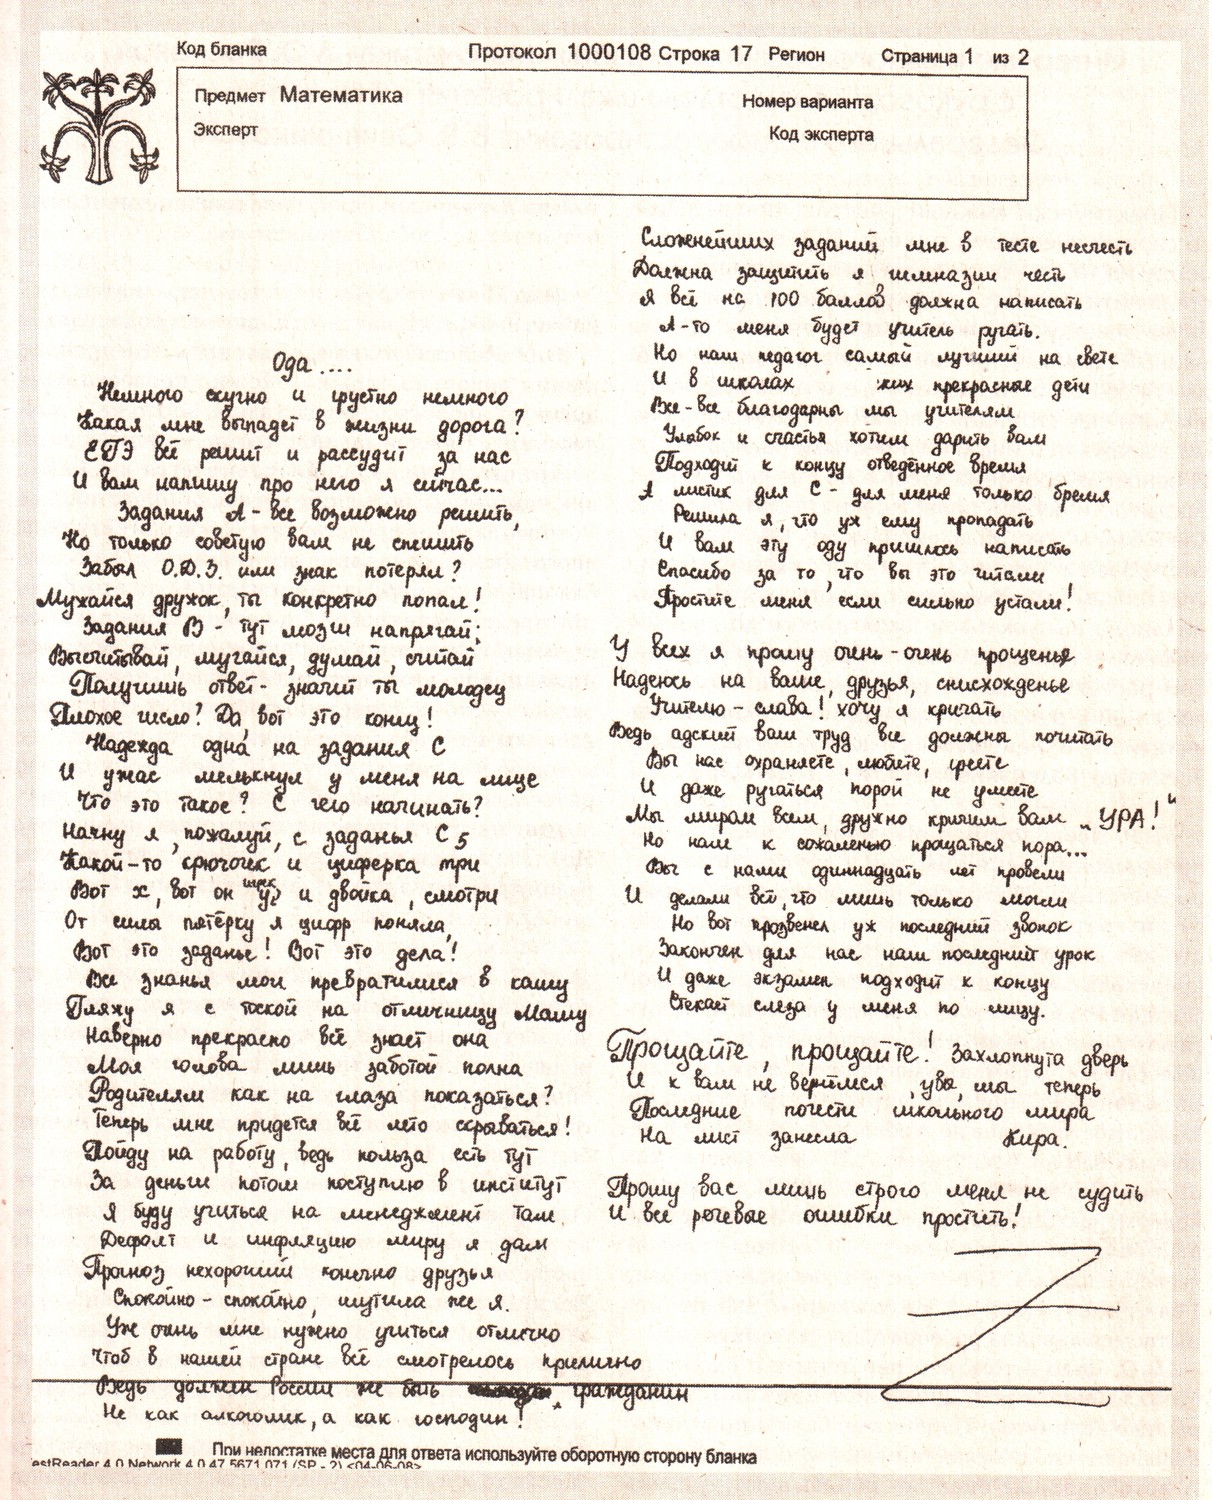 Код бланка
Протокол 1000108 Строка 17 Регион Страница 1 из 2
Предмет Математика
Номер варианта
Эксперт
Код эксперта
Ода....
Немного скучно и грустно немного
Какая мне выпадет в жизни дорога?
ЕГЭ всё решит и рассудит за нас
И вам напишу про него я сейчас...
Задания А - все возможно решить,
Но только советую вам не спешить
Забыл О.Д.З. или знак потерял?
Мужайся дружок, ты конкретно попал!
Задания В - тут мозги напрягай;
Высчитывай, мугайся, думай, считай
Получишь ответ - значит ты молодец
Плохое число? Да, вот это конец!
Надежда одна на задания С
И ужас мелькнул у меня на лице
Что это такое? С чего начинать?
Начну я, пожалуй, с заданья С5
Какой-то крючочек и циферка три
Вот х, вот он игрек у, и двойка, смотри
От силы пятёрку я цифр поняла,
Вот это заданье! Вот это дела!
Все знанья мои превратились в кашу
Гляжу я с тоской на отличницу Машу
Наверно прекрасно всё знает она
Моя голова лишь заботой полна
Родителям как на глаза показаться?
Теперь мне придется всё лето скрываться!
Пойду на работу, ведь польза есть тут
За деньги потом поступлю в институт
Я буду учиться на менеджмент там
Дефолт и инфляцию миру я дам
Прогноз нехороший конечно друзья
Спокойно - спокойно, шутила же я.
Уж очень мне нужно учиться отлично
Чтоб в нашей стране всё смотрелось прилично
Ведь должен России же быть гражданин
Не как алкоголик, а как господин!
Сложнейших заданий мне в тесте несчесть
Должна защитить я гимназии честь
Я всё на 100 баллов должна написать
А-то меня будет учитель ругать.
Но наш педагог самый лучший на свете
И в школах ких прекрасные дети
Все-все благодарны мы учителям
Улыбок и счастья хотим дарить вам
Подходит к концу отведённое время
А листик для С - для меня только бремя
Решила я, что уж ему пропадать
И вам эту оду пришлось написать
Спасибо за то, что вы это читали
Простите меня, если сильно устали!
У всех я прошу очень-очень прощенья
Надеюсь на ваше, друзья, снисхожденье
Учителю - слава! хочу я кричать
Ведь адский ваш труд все должны почитать
Вы нас охраняете, любите, греете
И даже ругаться порой не умеете
Мы миром всем, дружно кричим вам „УРА!"
Но нам к сожаленью прощаться пора...
Вы с нами одиннадцать лет провели
И делали всё, что лишь только могли
Но вот прозвенел уж последний звонок
Закончен для нас наш последний урок
И даже экзамен подходит к концу
Стекает слеза у меня по лицу.
Прощайте, прощайте! Захлопнута дверь
И к вам не вернёмся, увы, мы теперь
Последние почести школьного мира
На лист занесла Кира.
Прошу вас лишь строго меня не судить
И все речевые ошибки простить!
При недостатке места для ответа используйте оборотную сторону бланка
estReader 4.0 Network 4.0.47.5671.071 (SP - 2) <04-06-08>